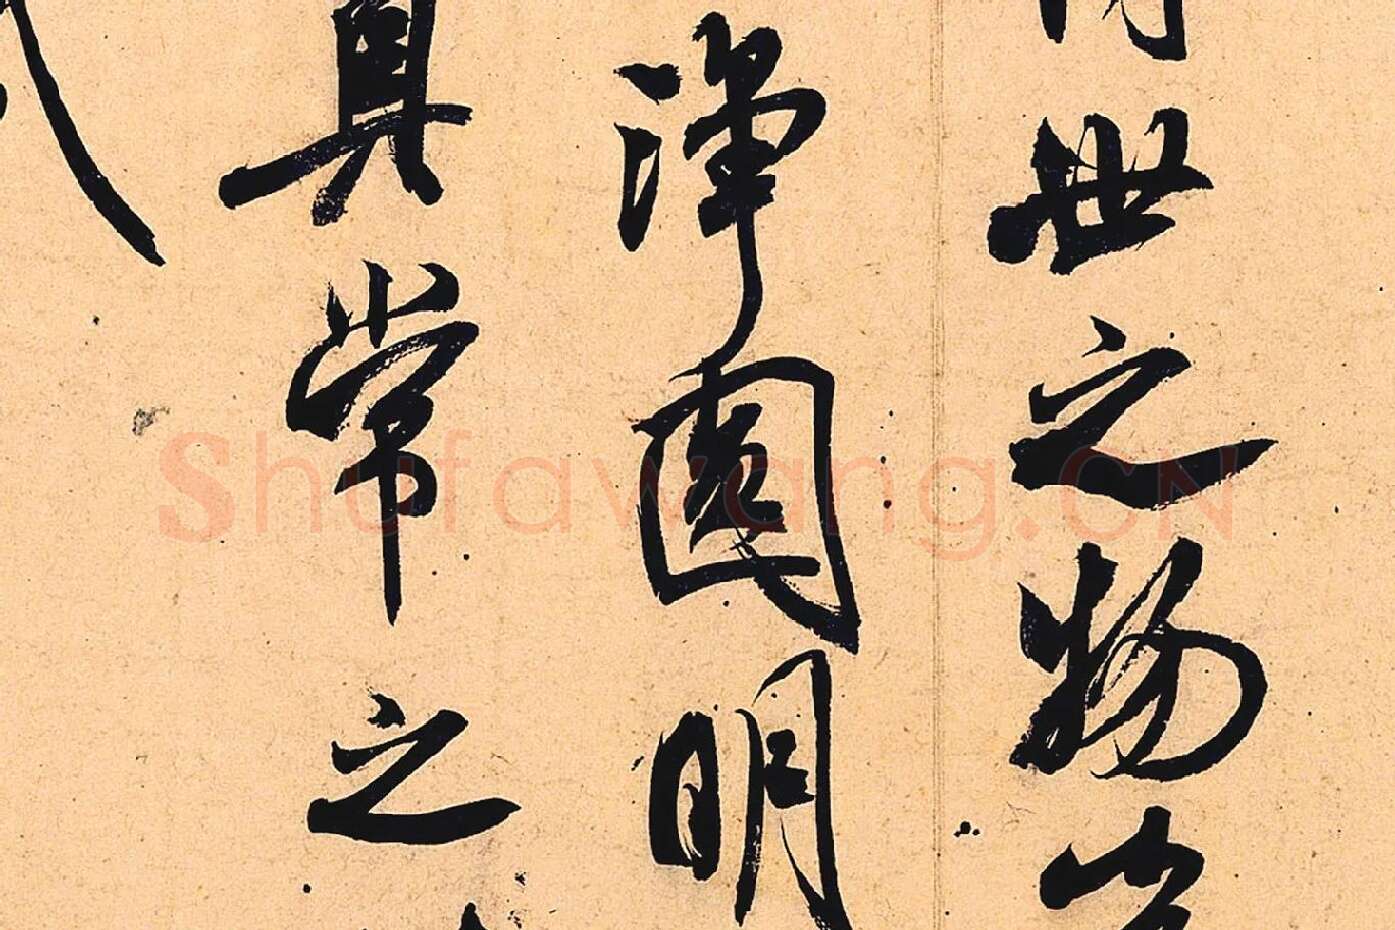 世之物
淨圓明
真常之
Shufawang.CN